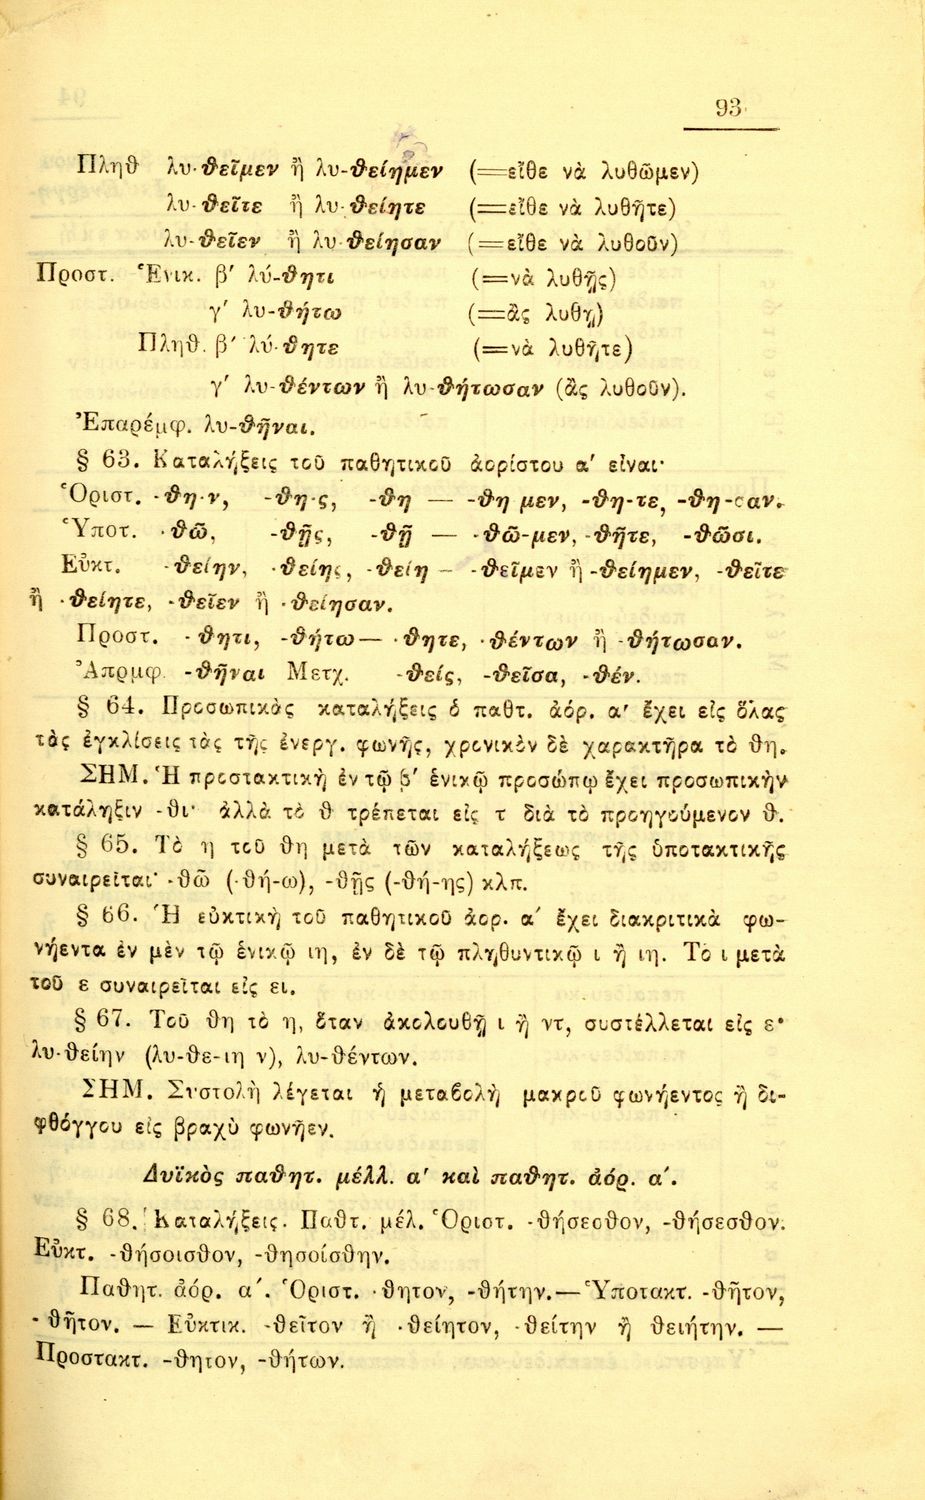 93
Πληθ λυ-θεῖμεν ἢ λυ-θείημεν (=εἴθε νὰ λυθῶμεν)
λυ-θεῖτε ἢ λυ-θείητε (=εἴθε νὰ λυθῆτε)
λυ-θεῖεν ἢ λυ-θείησαν (=εἴθε νὰ λυθοῦν)
Προστ. Ἑνικ. β′ λύ-θητι (=νὰ λυθῇς)
γ′ λυ-θήτω (=ἂς λυθῇ)
Πληθ. β′ λύ-θητε (=νὰ λυθῆτε)
γ′ λυ-θέντων ἢ λυ-θήτωσαν (ἂς λυθοῦν).
Ἐπαρέμφ. λυ-θῆναι.
§ 63. Καταλήξεις τοῦ παθητικοῦ ἀορίστου α′ εἶναι·
Ὁριστ. -θη-ν, -θη-ς, -θη — -θη μεν, -θη-τε, -θη-σαν.
Ὑποτ. -θῶ, -θῇς, -θῇ — -θῶ-μεν, -θῆτε, -θῶσι.
Εὐκτ. -θείην, -θείης, -θείη — -θεῖμεν ἢ -θείημεν, -θεῖτε
ἢ -θείητε, -θεῖεν ἢ -θείησαν.
Προστ. -θητι, -θήτω — -θητε, -θέντων ἢ -θήτωσαν.
Ἀπρμφ. -θῆναι Μετχ. -θείς, -θεῖσα, -θέν.
§ 64. Προσωπικὰς καταλήξεις ὁ παθτ. ἀόρ. α′ ἔχει εἰς ὅλας
τὰς ἐγκλίσεις τὰς τῆς ἐνεργ. φωνῆς, χρονικὸν δὲ χαρακτῆρα τὸ θη.
ΣΗΜ. Ἡ προστακτικὴ ἐν τῷ β′ ἑνικῷ προσώπῳ ἔχει προσωπικὴν
κατάληξιν -θι· ἀλλὰ τὸ θ τρέπεται εἰς τ διὰ τὸ προηγούμενον θ.
§ 65. Τὸ η τοῦ θη μετὰ τῶν καταλήξεως τῆς ὑποτακτικῆς
συναιρεῖται· -θῶ (-θή-ω), -θῇς (-θή-ης) κλπ.
§ 66. Ἡ εὐκτικὴ τοῦ παθητικοῦ ἀορ. α′ ἔχει διακριτικὰ φω-
νήεντα ἐν μὲν τῷ ἑνικῷ ιη, ἐν δὲ τῷ πληθυντικῷ ι ἢ ιη. Τὸ ι μετὰ
τοῦ ε συναιρεῖται εἰς ει.
§ 67. Τοῦ θη τὸ η, ὅταν ἀκολουθῇ ι ἢ ντ, συστέλλεται εἰς ε·
λυ-θείην (λυ-θε-ιη ν), λυ-θέντων.
ΣΗΜ. Συστολὴ λέγεται ἡ μεταβολὴ μακροῦ φωνήεντος ἢ δι-
φθόγγου εἰς βραχὺ φωνῆεν.
Δυϊκὸς παθητ. μέλλ. α′ καὶ παθητ. ἀόρ. α′.
§ 68. Καταλήξεις. Παθτ. μέλ. Ὁριστ. -θήσεσθον, -θήσεσθον.
Εὐκτ. -θήσοισθον, -θησοίσθην.
Παθητ. ἀόρ. α′. Ὁριστ. -θητον, -θήτην.— Ὑποτακτ. -θῆτον,
-θῆτον. — Εὐκτικ. -θεῖτον ἢ -θείητον, -θείτην ἢ θειήτην. —
Προστακτ. -θητον, -θήτων.